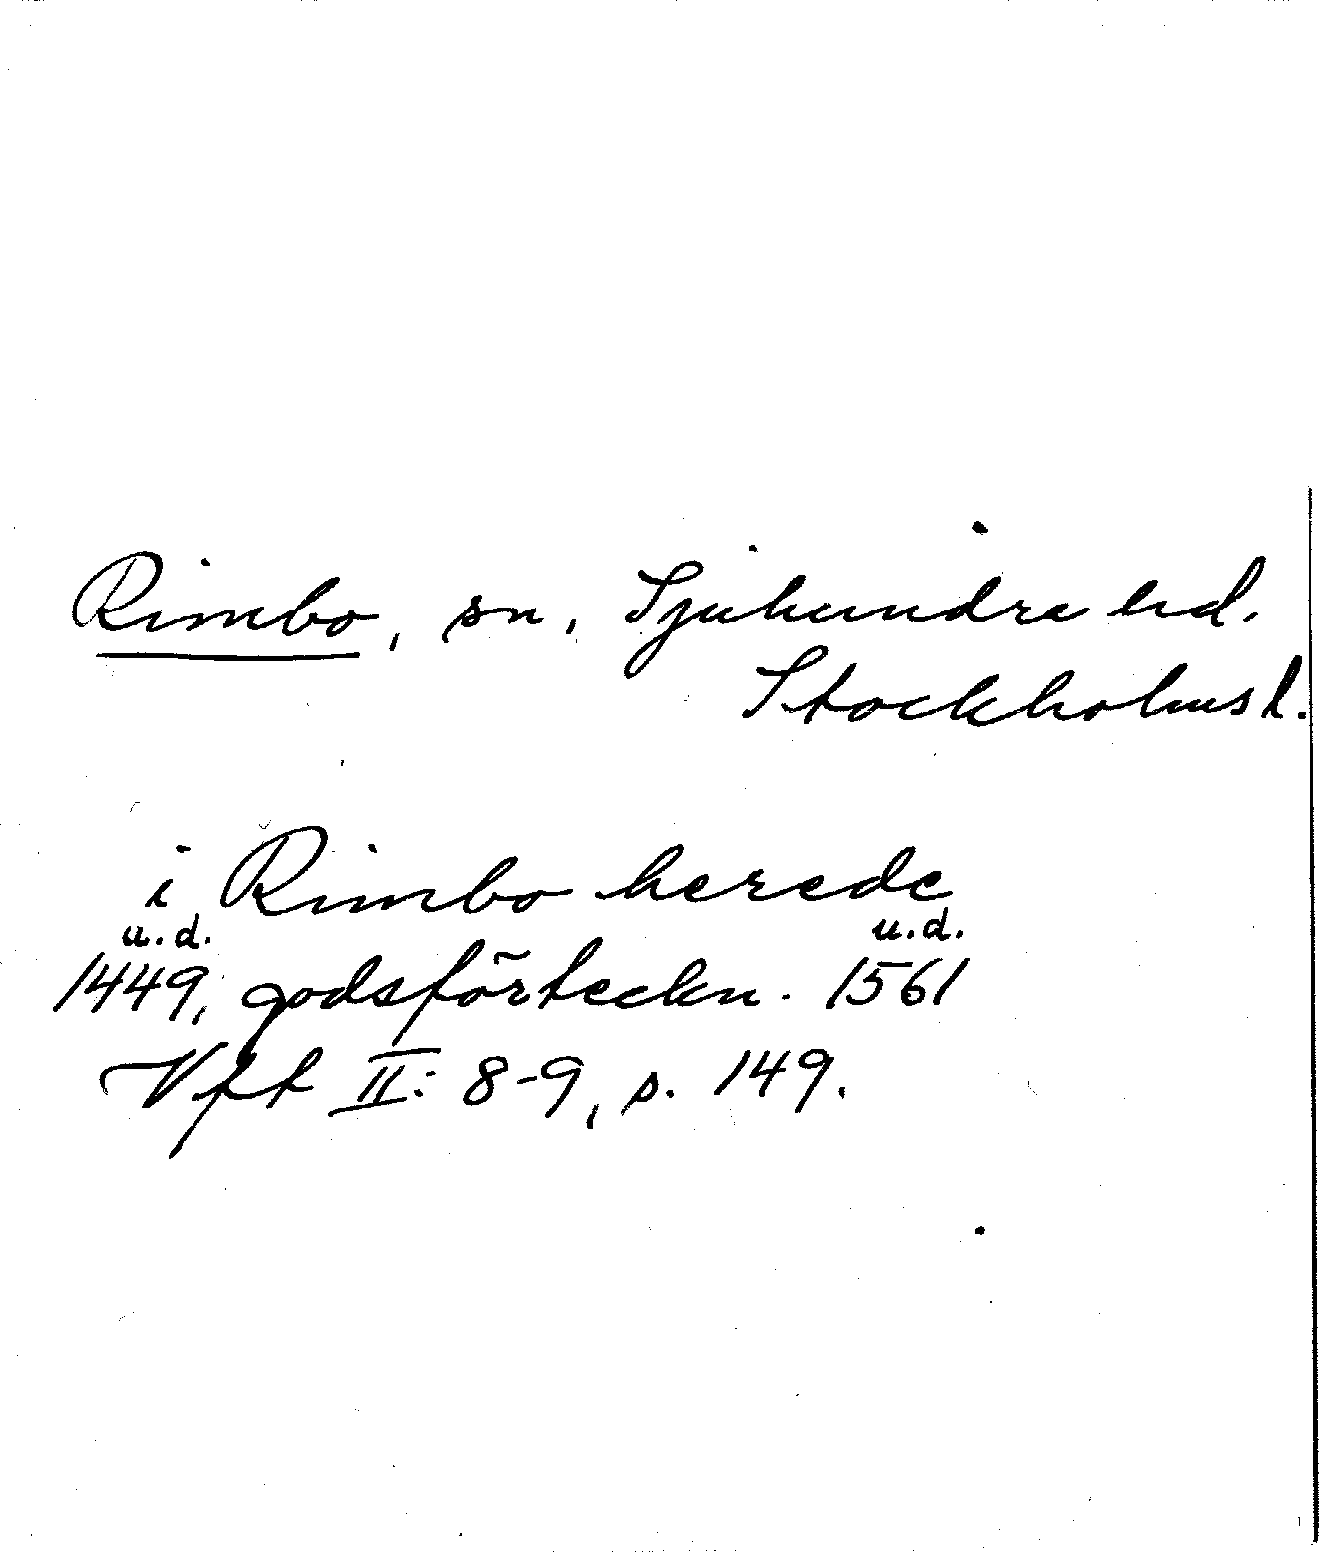 Rimbo, sn, Sjuhundra hd.
Stockholms l.
i Rimbo herede
u.d. u.d.
1449, godsförteckn. 1561
Vft II: 8-9, s. 149.